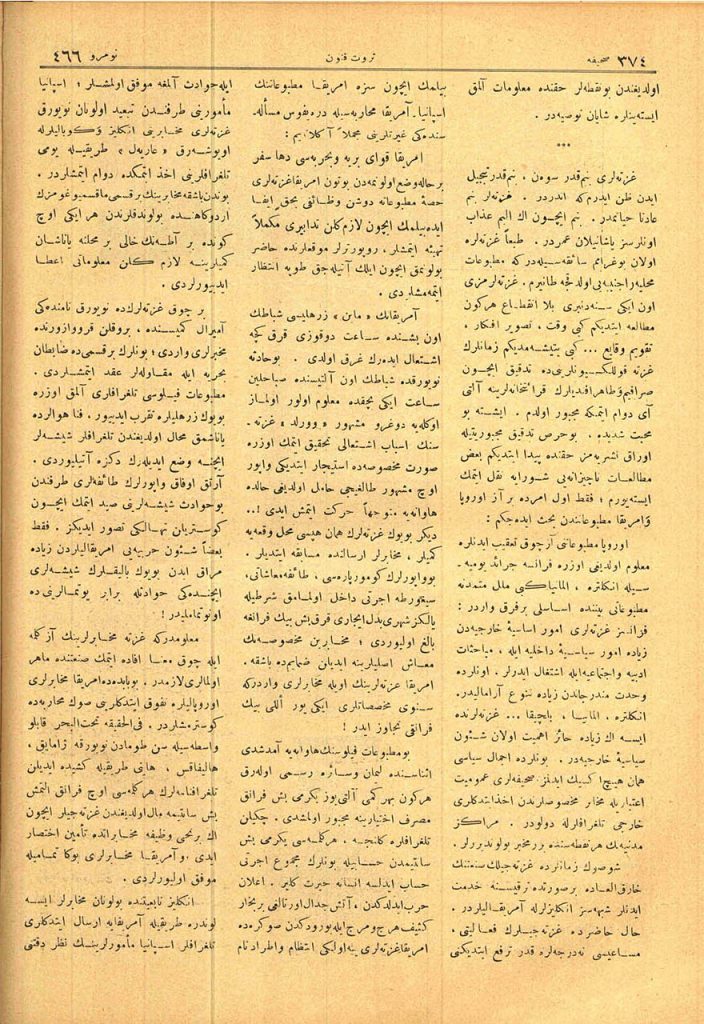 صحیفه ٣٧٤
ثروت فنون
نومرو ٤٦٦
اولدیغندن بونقطه‌لر حقنده معلومات آلمق
ایسته‌ینلره شایان توصیه‌در .
***
غزته‌لری بنم‌قدر سوه‌ن ، بنم‌قدر تبجیل
ایدن ظن ایدرم‌که اندردر . غزته‌لر بنم
عادتا حیاتمدر . بنم ایچون اك الیم عذاب
اونلرسز یاشانیلان عمردر . طبعاً غزته‌لره
اولان بوغرامم سائقه‌سیله‌درکه مطبوعات
محلیه و اجنبیه‌یی اولدقجه طانیرم . غزته‌لرمزی
اون ایکی سنه‌دنبری بلا انقطاع هرکون
مطالعه ایتدیکم کبی وقت ، تصویر افکار ،
تقویم وقایع ... کبی یتیشه‌مدیکم زمانلرك
غزته قوللکسیونلرینی‌ده تدقیق ایچون
صرافیم و طاهرافندیلرك قرائتخانه‌لرینه آلتی
آی دوام ایتمکه مجبور اولدم . ایشته بو
محبت شدیده ، بوحرص تدقیق مجبوریتیله
اوراق نشریه‌مز حقنده پیدا ایتدیکم بعض
مطالعات ناچیزانه‌یی شورایه نقل ایتمك
ایسته‌یورم ؛ فقط اول امرده بر آز اوروپا
و آمریقا مطبوعاتندن بحث ایده‌جکم :
اوروپا مطبوعاتنی آزچوق تعقیب ایدنلره
معلوم اولدیغی اوزره فرانسه جرائد یومیه‌ـ
سیله انکلتره ، المانیا کبی ملل متمدنه
مطبوعاتی بیننده اساسلی برفرق واردر :
فرانسز غزته‌لری امور اساسیهٔ خارجیه‌دن
زیاده امور سیاسیهٔ داخلیه ایله ، مباحثات
ادبیه و اجتماعیه ایله اشتغال ایدرلر . اونلرده
وحدت مندرجاتدن زیاده تنوع آرامالیدر .
انکلتره ، المانیا ، بلچیقا ... غزته‌لرنده
ایسه اك زیاده حائز اهمیت اولان شئون
سیاسیهٔ خارجیه‌در . بونلرده اجمال سیاسی
همان هیچ اکسیك ایدلمز صحیفه‌لری عمومیت
اعتباریله مخابر مخصوصلرندن اخذ ایتدکلری
خارجی تلغرافلرله دولودر . مراکز
مدنیه‌نك هرنقطه‌سنده برر مخبر بولندیررلر .
شوصوك زمانلرده غزته‌جیلك صنعتنك
خارق العاده برصورتده ترقیسنه خدمت
ایدنلر شبهه‌سز انکلیزلرله آمریقالیلردر .
حال حاضرده غزته‌جیلرك فعالیتی ،
مساعیسی نه‌درجه‌لره قدر ترفع ایتدیکنی
بیلمك ایچون سزه امریقا مطبوعاتنك
اسپانیاـ آمریقا محاربه‌سیله دره‌یفوس مسأله‌ـ
سنده‌کی غیرتلرینی مجملاً آکلاتایم :
امریقا قوای بریه و بحریه‌سی دها سفر
برحاله وضع اولونمه‌دن بوتون امریقا غزته‌لری
حصهٔ مطبوعاته دوشن وظائفی بحق ایفا
ایده‌بیلمك ایچون لازم‌کلن تدابیری مکملاً
تهیئه ایتمشلر ، روپورترلر موقعلرنده حاضر
بولونمق ایچون ایلك آتیله‌جق طوپه انتظار
ایتمه‌مشلردی .
آمریقانك «ماین» زرهلیسی شباطك
اون بشنده ساعت دوقوزی قرق کچه
اشتعال ایده‌رك غرق اولدی . بوحادثه
نویورقده شباطك اون آلتیسنده صباحلین
ساعت ایکی بچقده معلوم اولور اولماز
اوکله‌یه دوغرو مشهور «وورلد» غزته‌ـ
سنك اسباب اشتعالی تحقیق ایتمك اوزره
صورت مخصوصه‌ده استیجار ایتدیکی واپور
اوچ مشهور طالغیجی حامل اولدیغی حالده
هاوانایه متوجهاً حرکت ایتمش ایدی !..
دیکر بویوك غزته‌لرك همان هپسی محل وقعه‌یه
کمیلر ، مخابرلر ارسالنده مسابقه ایتدیلر .
بوواپورلرك کومورپاره‌سی ، طائفه معاشاتی ،
سیغورطه اجرتی داخل اولمامق شرطیله
یالکز شهری بدل ایجاری قرق‌بش بیك فرانغه
بالغ اولیوردی ؛ مخابرین مخصوصه‌نك
معاش اصلیلرینه ایدیلن ضمایم‌ده باشقه .
امریقا غزته‌لرینك اویله مخابرلری واردرکه
سنوی مخصصاتلری ایکی یوز اللی بیك
فرانقی تجاوز ایدر !
بو مطبوعات فیلوسنك هاوانایه آمدشدی
اثناسنده لیمان وسائره رسمی اوله‌رق
هرکون بهر کمی آلتی‌یوز یکرمی بش فرانق
مصرف اختیارینه مجبور اولمشدی . چکیلن
تلغرافلره کلنجه ، هرکلمه‌سی یکرمی بش
سانتیمدن حسابیله بونلرك مجموع اجرتی
حساب ایدلسه انسانه حیرت کلیر . اعلان
حرب ایدلدکدن ، آتش جدال اورتالغی بربخار
کثیف هرج و مرج ایله بورودکدن صوکره‌ده
امریقا غزته‌لری ینه اولکی انتظام واطراد تام
ایله حوادث آلمغه موفق اولمشلر ؛ اسپانیا
مأمورینی طرفندن تبعید اولونان نویورق
غزته‌لری مخابرینی انکلیز و کوبالیلرله
اویوشه‌رق «عاریه‌ل» طریقیله یومی
تلغرافلرینی اخذ ایتمکده دوام ایتمشلردر .
بوندن باشقه مخابرینك برقسمی ماقسیموغومزك
اردوکاهنده بولوندقلرندن هر ایکی اوچ
کونده بر آطه‌نك خالی بر محلنه یاناشان
کمیلرینه لازم کلن معلوماتی اعطا
ایدییورلردی .
بر چوق غزته‌لرك‌ده نویورق نامنده‌کی
آمیرال کمیسنده ، بروقلن قرووازورنده
مخبرلری واردی ؛ بونلرك برقسمی‌ده ضابطان
بحریه ایله مقاوله‌لر عقد ایتمشلردی .
مطبوعات فیلوسی تلغرافلری آلمق اوزره
بویوك زرهلیلره تقرب ایدییور ، فنا هوالرده
یاناشمق محال اولدیغندن تلغرافلر شیشه‌لر
ایچنه وضع ایدیله‌رك دکزه آتیلیوردی .
آرتق اوفاق واپورلرك طائفه‌لری طرفندن
بوحوادث شیشه‌لرینی صید ایتمك ایچون
کوستریلن تهالکی تصور ایدیکز . فقط
بعضاً شئون حربیه‌یی امریقالیلردن زیاده
مراق ایدن بویوك بالیقلرك شیشه‌لری
ایچنده‌کی حوادثله برابر یوتمالرینی ده
اونوتمامالیدر !
معلومدرکه غزته مخابرلرینك آز کلمه
ایله چوق معنا افاده ایتمك صنعتنده ماهر
اولمالری لازمدر . بوبابده‌ده امریقا مخابرلری
اوروپالیلره تفوق ایتدکلرینی صوك محاربه‌ده
کوسترمشلردر . فی‌الحقیقه تحت‌البحر قابلو
واسطه‌سیله سن طوماندن نویورقه ژامایق ،
هالیفاقس ، هایتی طریقیله کشیده ایدیلن
تلغرافنامه‌لرك هرکلمه‌سی اوچ فرانق التمش
بش سانتیمه مال اولدیغندن غزته‌جیلر ایچون
اك برنجی وظیفه مخابراتده تأمین اختصار
ایدی . و آمریقا مخابرلری بوکا تمامیله
موفق اولیورلردی .
انکلیز تابعیتنده بولونان مخابرلر ایسه
لوندره طریقیله آمریقایه ارسال ایتدکلری
تلغرافلر اسپانیا مأمورلرینك نظر دقتی